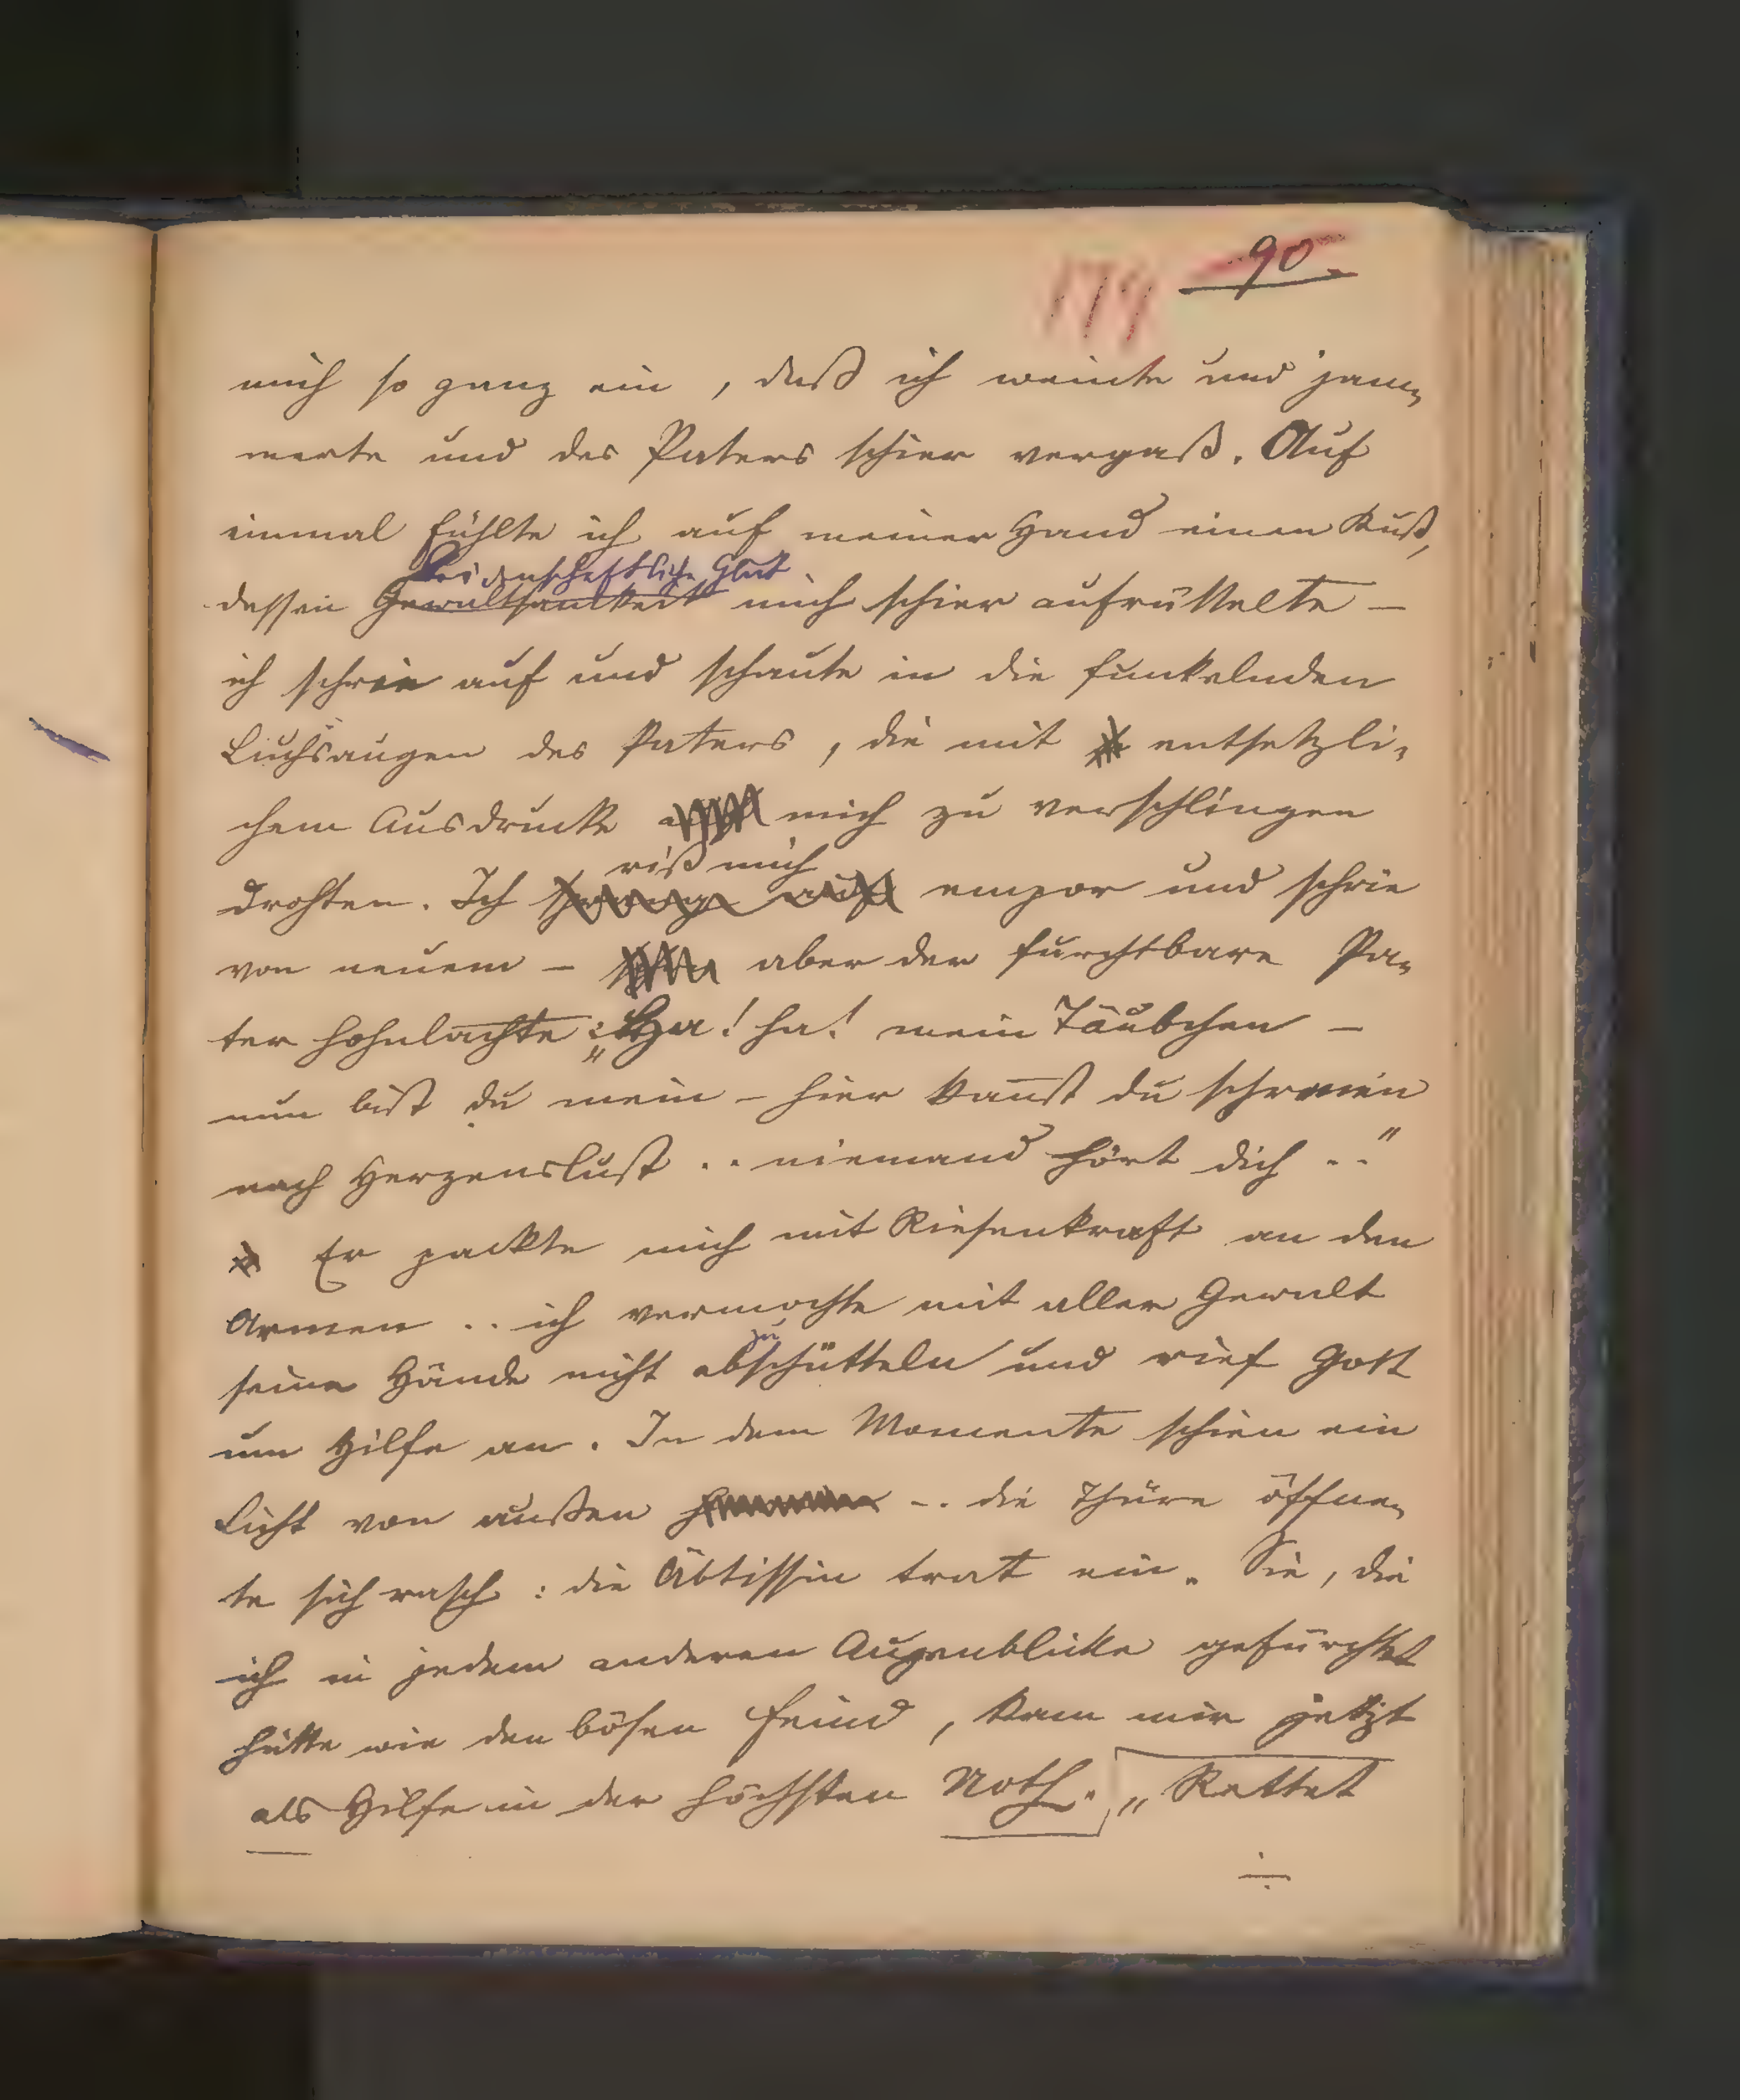 90.
179
mich so ganz ein, daß ich weinte und jam-
merte und des Paters schier vergaß. Auf
einmal fühlte ich auf meiner Hand einen Kuß,
leidenschaftliche Glut
dessen Gewaltsamkeit mich schier aufrüttelte –
ich schrie auf und schaute in die funkelnden
Luchsaugen des Paters, die mit entsetzli-
chem Ausdrucke mich zu verschlingen
riß mich
drohten. Ich sprang auf empor und schrie
von neuem – aber der furchtbare Pa-
ter hohnlachte: „Ha! ha! mein Täubchen –
nun bist du mein – hier kannst du schreien
nach Herzenslust .. niemand hört dich .."
Er packte mich mit Riesenkraft an den
Armen .. ich vermochte mit aller Gewalt
zu
seine Hände nicht abschütteln und rief Gott
um Hilfe an. In dem Momente schien ein
Licht von außen .. die Thüre öffne-
te sich rasch: die Äbtissin trat ein. Sie, die
ich in jedem anderen Augenblicke gefürchtet
hätte wie den bösen Feind, kam mir jetzt
als Hilfe in der höchsten Noth. „Rettet